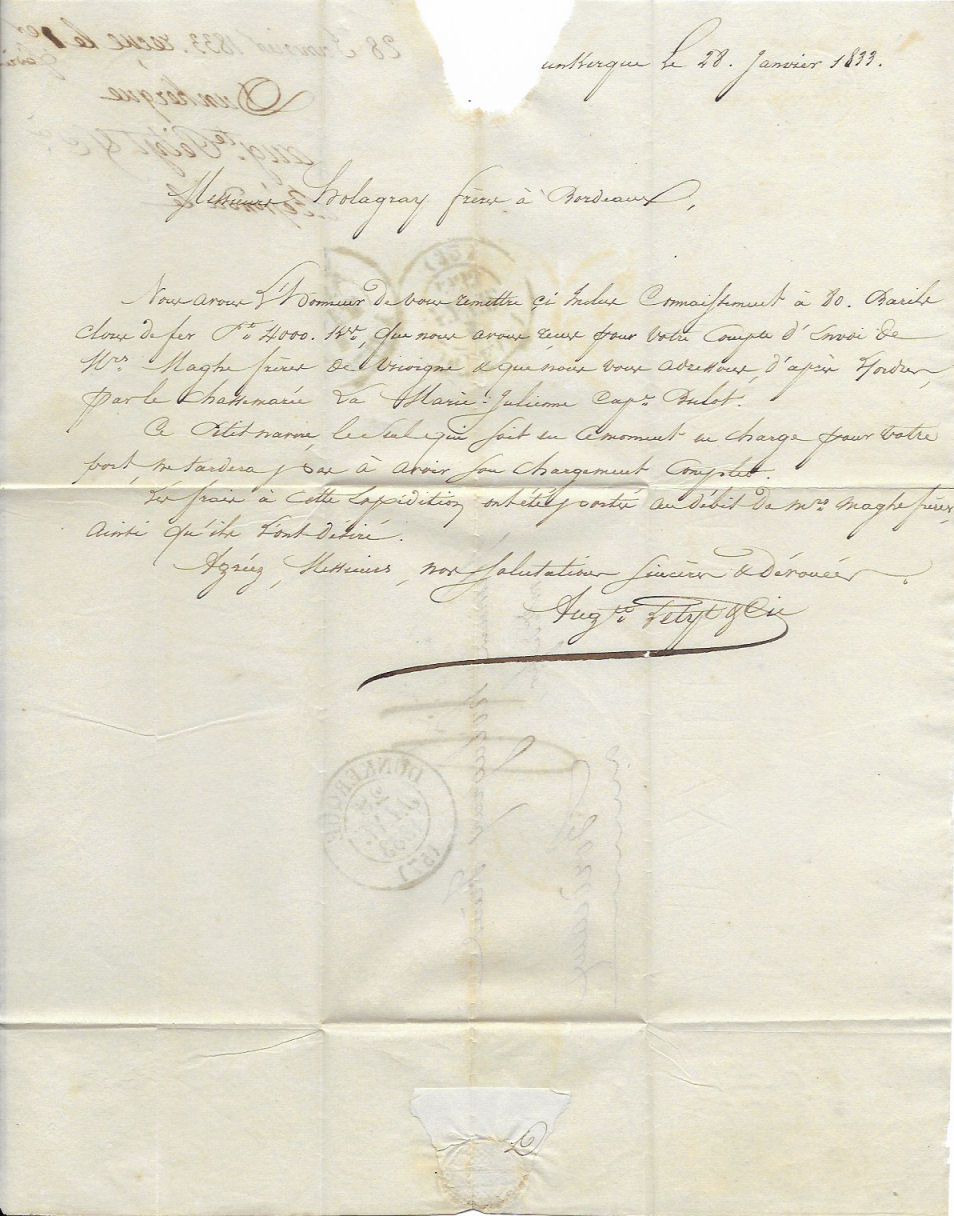 unkerque le 28. Janvier 1833.
Messieurs Holagray frères à Bordeaux,
Nous avons L'Honneur de vous remettre çi Inclus Connaissement à 80. Barils
cloux de fer Pt 4000. Ko, que nous avons reçus pour votre Compte d'Envoi de
Mrs Maghe frères de & que nous vous adressons, d'après Leurs ordres,
par le Chassemarée La Marie-Julienne Capne Bulot.
Ce Petit navire, le seul qui soit en ce moment en charge pour votre
port, ne tardera pas à avoir son chargement Complet.
Les frais à cette Expédition ont été portés au débit de Mrs Maghe frères,
Ainsi qu'ils L'ont désiré.
Agréez, Messieurs, nos Salutations Sincères & Dévouées.
Augte Petyt & Cie
28 Janvier 1833. reçue le
Dunkerque
augte Petyt & Cie
DUNKERQUE
28
JANV
1833